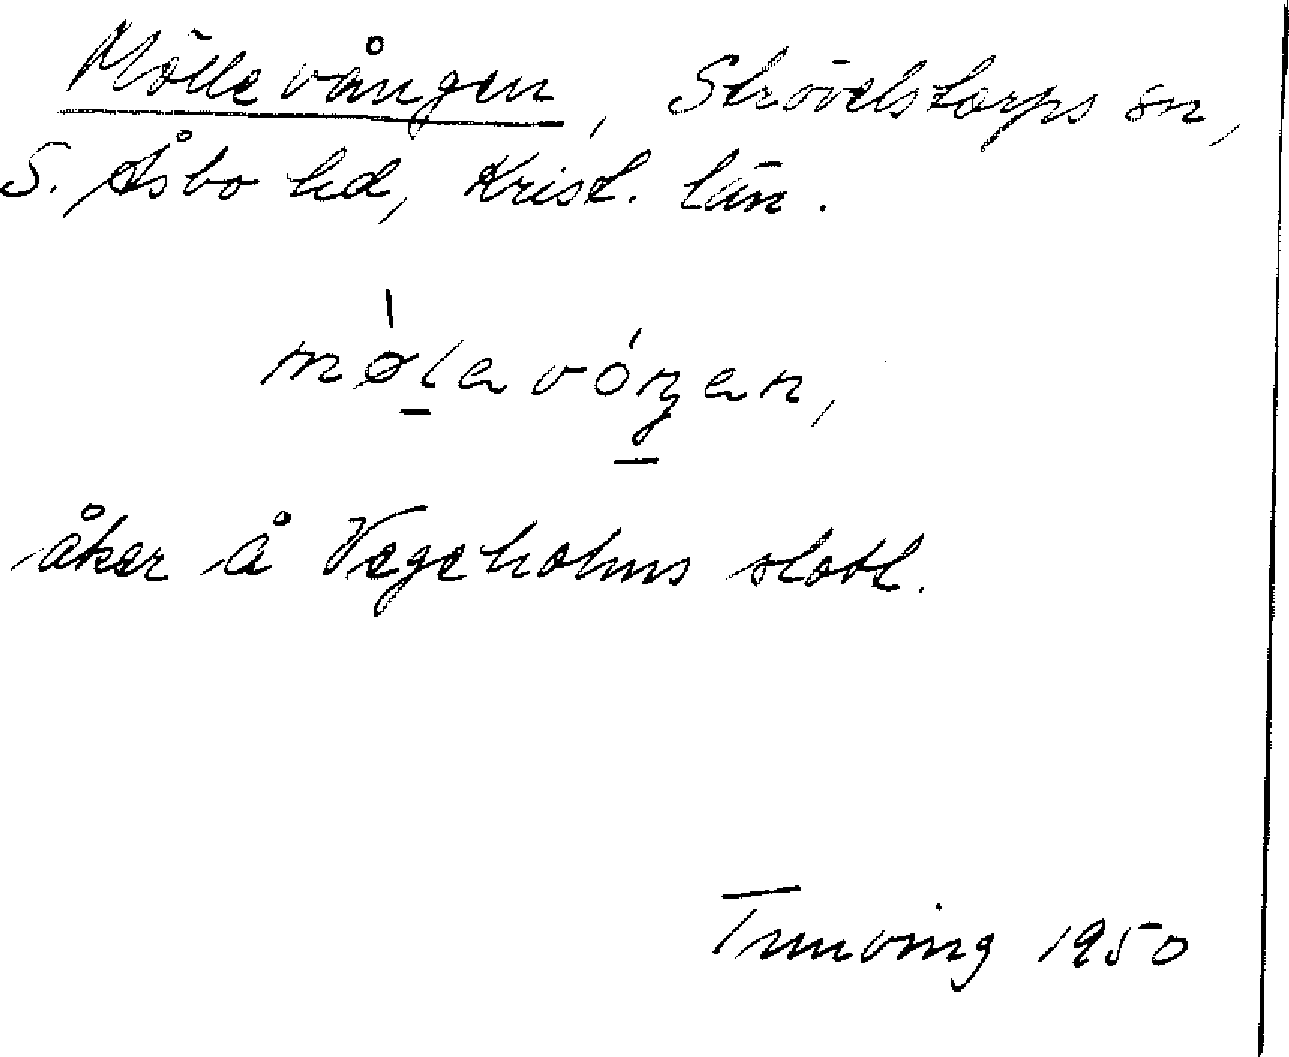 Möllevången, Strövelstorps sn,
S. Åsbo hd, Krist. län.
mø̀lavóŋan,
åker å Vegeholms slott.
1950